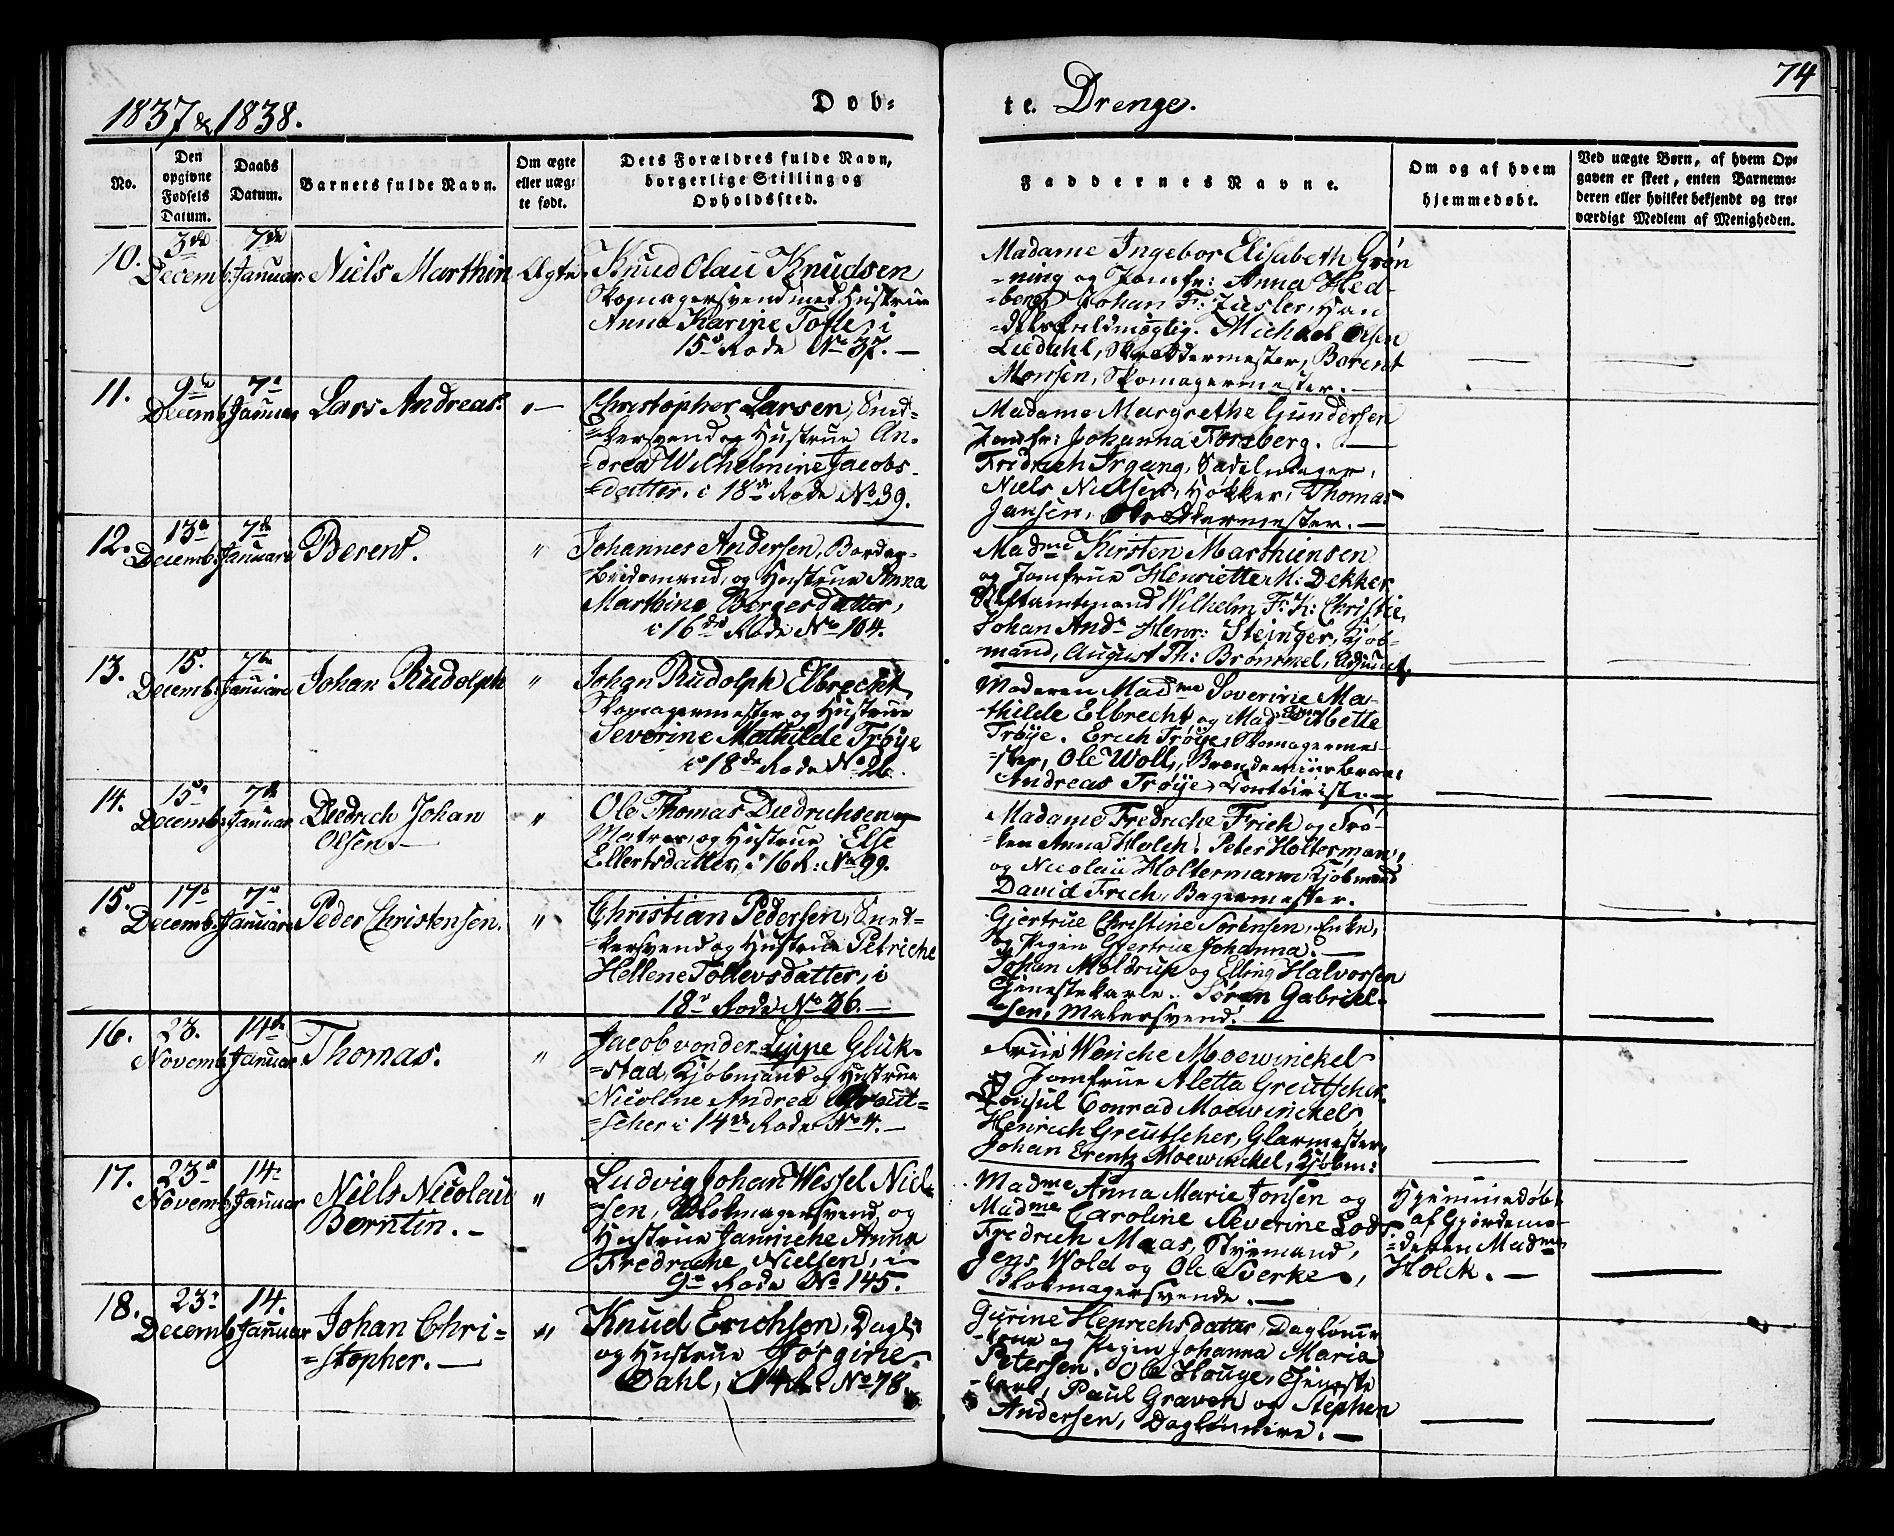 1837 & 1838.
Døb-
te Drenge.
74
No.
Den opgivne Fødsels Datum.
Daabs Datum.
Barnets fulde Navn.
Om ægte eller uægte født.
Dets Forældres fulde Navn, borgerlige Stilling og Opholdssted.
Faddernes Navne.
Om og af hvem hjemmedøbt.
Ved uægte Børn, af hvem Opgaven er skeet, enten Barnemoderen eller hvilket bekjendt og troværdigt Medlem af Menigheden.
10.
3de Decemb.
7de Januar.
Niels Marthin
Ægte.
Knud Olaii Knudsen
Skomagersvend med Hustrue
Anna Karine Tofte, i
15de Rode No 37. —
Madame Ingebor Elisabeth Grøn-
-ning og Jomfr: Anna Hed-
-berg, Johan Fr: Zusler, Han-
-delsfuldmægtig. Michael Olsen
Liedahl, Skræddermester, Berent
Monsen, Skomagermester. —
11.
9de Decemb.
7de Januar
Lars Andreas.
" —
Christopher Larsen, Sned-
=kersvend og Hustrue An-
=drea Wilhelmine Jacobs-
=datter. i 18de Rode No 39.
Madame Margrethe Gundersen
Jomfr: Johanna Forsberg. —
Fridrich Irgang, Sadelmager,
Niels Nielsen, Høkker, Thomas
Jansen, Skræddermester. —
12.
13de Decemb.
7de Januar
Berent.
"
Johannes Andersen, Border-
Anna
Marthine Bergesdatter,
i 16de Rode No 104.
Madme Kirsten Marthiensen
og Jomfrue Henriette M: Dekker
Stiftamtmand Wilhelm F: K: Christie,
Johan And. Henr: Steinger, Kjøb-
mand, August Th: Brømmel, Adjunct.
13.
15. Decemb.
7de Januar
Johan Rudolph
"
Johan Rudolph Elbrecht
Skomagermester og Hustrue
Severine Mathilde Trøye
i 18de Rode No 26.
Moderen Madme Severine Ma-
-thilde Elbrecht og Madme Abette
Trøye. Erich Trøye, Skomagerme-
-ster, Ole Woll,
Andreas Trøye, Contoirist. —
14.
15de Decemb.
7de Januar
Diedrich Johan
Olsen. —
"
Ole Thomas Diedrichsen
Matros, og Hustrue Else
Ellertsdatter, i 16 R: No 99.
Madame Fredriche Frich og Frø-
-ken Anna Holch. Peter Holterman,
og Nicolaii Holtermann, Kjøbmænd
David Frich, Bagermester.
15.
17de Decemb.
7de Januar
Peder Christensen.
"
Christian Pedersen, Sned-
=kersvend og Hustrue Petriche
Hellene Tollevsdatter, i
18de Rode No 36. —
Gjertrue Christine Sørensen, Enke,
og Pigen Gjertrue Johanna. —
Johan Moldrup og Elling Halvorsen
Tjenestekarle. Søren Gabriel-
-sen, Malersvend. —
16.
23. Novemb.
14de Januar
Thomas.
"
Jacob von der Lippe Gluk-
=stad, Kjøbmand og Hustrue
Nicoline Andrea Greut-
=scher i 14de Rode No 4. —
Frue Wenche Moewinckel
og Jomfrue Aletta Greutscher
Consul Conrad Moewinckel
Henrich Greutscher, Glarmester,
Johan Erentz Moewinckel, Kjøbm:
17.
23de Novemb.
14 Januar
Niels Nicolaii
Berntin. —
"
Ludvig Johan Wessel Niel-
-sen, Blokmagersvend, og
Hustrue Janniche Anna
Fredriche Nielsen, i
9de Rode No 145.
Madme Anna Marie Jonsen og
Madme Caroline Severine Lods
Fredrich Maas, Styrmand,
Jens Wold og Ole Sverke,
Blokmagersvende. —
Hjemmedøbt
af Gjordemo-
=deren Madme
Holck. —
18.
23de Decemb.
14. Januar
Johan Chri-
=stopher. —
"
Knud Erichsen, Dagl:
og Hustrue Jorgine
Dahl, i 14 R. No 78.
Gurine Henrichsdatter, Dagløn-
og Pigen Johanna Maria
Petersen. Ole Houge, Tjeneste-
-karl, Paul Graven og Stephen
Andersen, Daglønnere. —